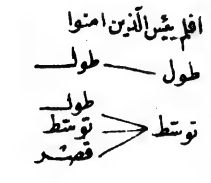 افلم يئس الّذين امنوا
طول طول
طول
توسّط توسّط
قصر